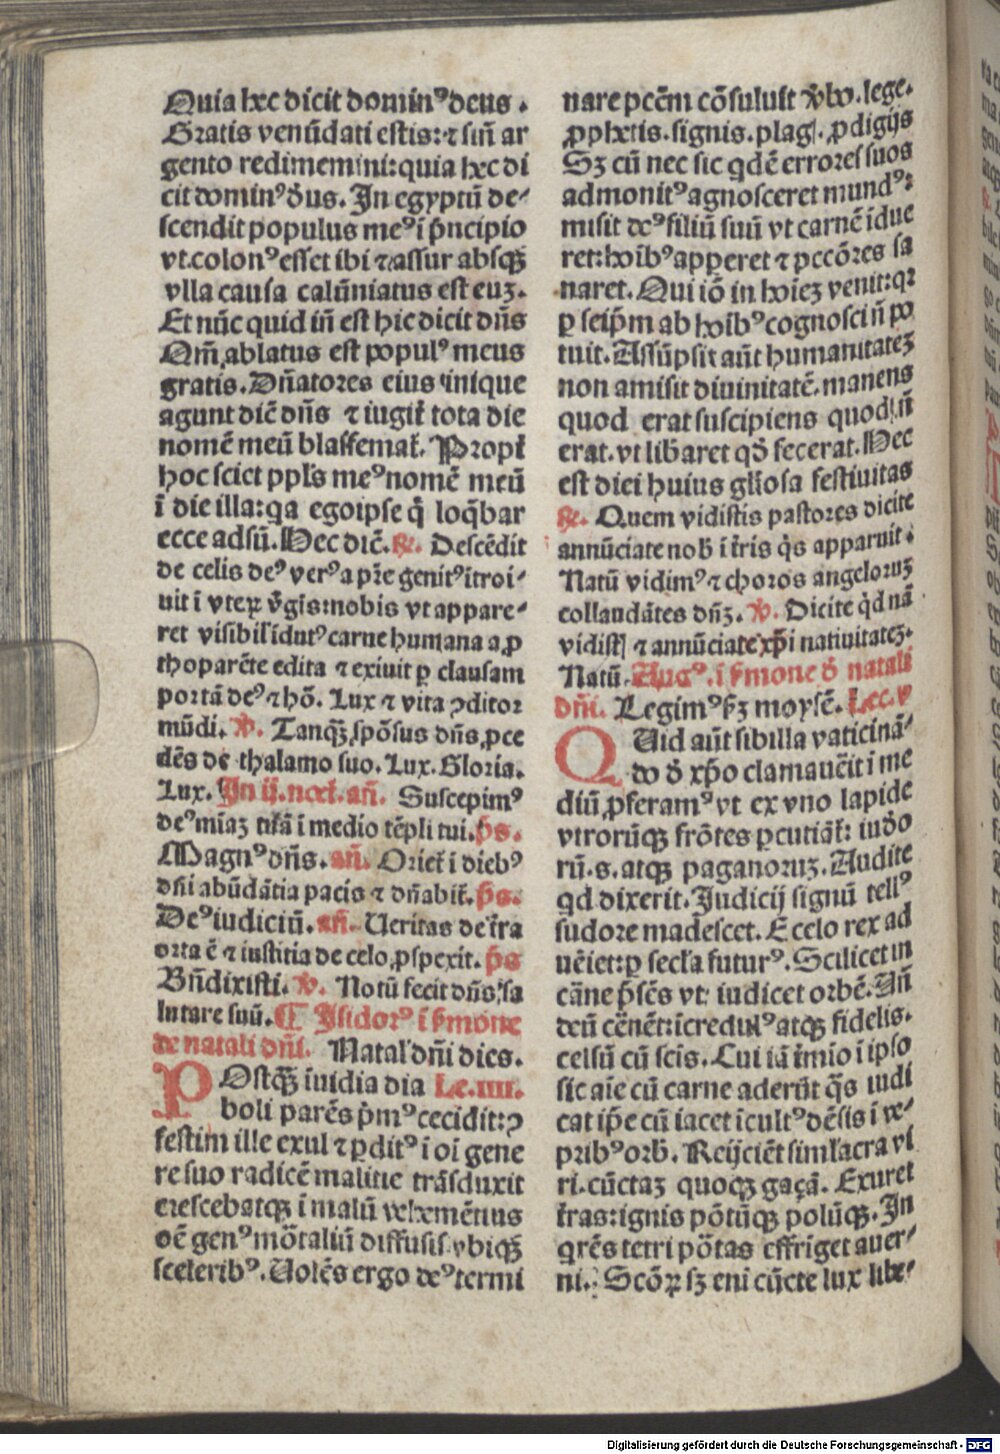 Quia hec dicit dominꝰ deus.
Gratis venūdati estis: ⁊ sin̄ ar
gento redimemini: quia hec di
cit dominꝰ d̄us. In egyptū de-
scendit populus meꝰ i p̄ncipio
vt.colonꝰ esset ibi ⁊ assur absqꝫ
vlla causa calūniatus est euꝫ.
Et nūc quid in̄ est hic dicit dn̄s
Qm̄ ablatus est populꝰ meus
gratis. Dn̄atores eius inique
agunt dic̄ dn̄s ⁊ iugit̄ tota die
nomē meū blasfemat̄. Propt̄
hoc sciet ppl̄s meꝰ nomē meū
ī die illa: qa egoipse q̄ loq̄bar
ecce adsū. Hec dic̄. ℟. Descēdit
de celis deꝰ verꝰ a pr̄e genitꝰ itroi-
uit i vteꝝ v̄gis: nobis vt appare-
ret visibil̓ idutꝰ carne humana a ꝓ
thoparēte edita ⁊ exiuit ꝑ clausam
portā deꝰ ⁊ hō. Lux ⁊ vita ꝯditor
mūdi. ℣. Tanqꝫ spōsus dn̄s ꝓce
dēs de thalamo suo. Lux. Gloria.
Lux. In ij. noct̄. an̄. Suscepimꝰ
deꝰ mīaꝫ tuā i medio tēpli tui. p̄s.
Magnꝰ dn̄s. an̄. Oriet̄ i diebꝰ
dn̄i abūdātia pacis ⁊ dn̄abit̄. p̄s.
Deꝰ iudiciū. an̄. Ueritas de t̄ra
orta ē ⁊ iustitia de celo ꝓspexit. p̄s
Bn̄dixisti. ℣. Notū fecit dn̄s sa
lutare suū. ¶ Isidorꝰ i s̄mone
de natali dn̄i. Natal̓ dn̄i dies.
POstqꝫ īuidia dia Le. iiii.
boli parēs p̄mꝰ cecidit: ꝯ
festim ille exul ⁊ ꝑditꝰ i oi gene
re suo radicē malitie trāsduxit
crescebatqꝫ i malū vehemētius
oē genꝰ mōtaliū diffusis vbiqꝫ
sceleribꝰ. Uolēs ergo deꝰ termi
nare pcc̄m cōsuluit v̄bo. lege.
ꝓphetis. signis. plag̓. ꝓdigijs
Sꝫ cū nec sic qdē errores suos
admonitꝰ agnosceret mundꝰ:
misit deꝰ filiū suū vt carnē idue
ret: hoībꝰ apperet ⁊ pccōres sa
naret. Qui iō in hoīeꝫ venit: qꝛ
ꝑ seip̄m ab hoībꝰ cognosci n̄ po
tuit. Assūpsit aūt humanitateꝫ
non amisit diuinitatē. manens
quod erat suscipiens quod n̄
erat. vt lib̄aret qd̄ fecerat. Hec
est diei huius gl̄iosa festiuitas
℟. Quem vidistis pastores dicite
annūciate nob̄ i t̄ris q̄s apparuit.
Natū vidimꝰ ⁊ choros angeloruꝫ
collaudātes dn̄ꝫ. ℣. Dicite q̄d nā
vidist̓ ⁊ annūciate xp̄i natiuitateꝫ.
Natū. Augꝰ. i s̄mone d̄ natali
dn̄i. Legimꝰ s̄ꝫ moysē. Lec. v
QUid aūt sibilla vaticinā-
do d̄ xp̄o clamauēit i me
diū ꝓferamꝰ vt ex vno lapide
vtrorūqꝫ frōtes ꝑcutiāt̄: iudo
rū. s. atqꝫ paganoruꝫ. Audite
qd dixerit. Judicij signū tellꝰ
sudore madescet. E celo rex ad
uēiet: ꝑ secl̄a futurꝰ. Scilicet in
cāne p̄sēs vt iudicet orbē. Un̄
deū cēnēt: icredulꝰ atqꝫ fidelis.
celsū cū scis. Cui iā t̄mio i ipso
sic aīe cū carne aderūt q̄s iudi
cat ip̄e cū iacet icultꝰ dēsis i ve-
pribꝰ orb̄. Reijciēt siml̄acra vi
ri. cūctaꝫ quoqꝫ gaçā. Exuret
t̄ras: ignis pōtūqꝫ polūqꝫ. In
qrēs tetri pōtas effriget auer-
ni. Scōꝝ sꝫ eni cūcte lux libe-